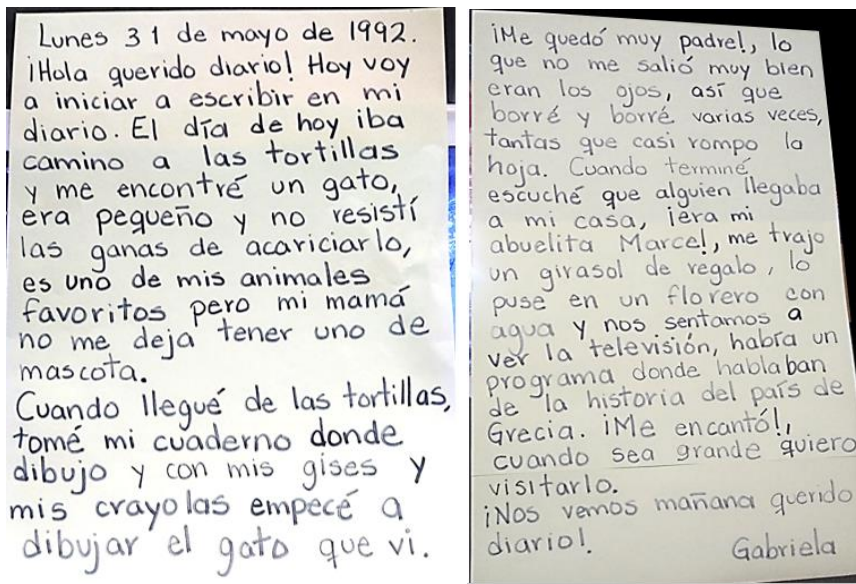 Lunes 31 de mayo de 1992.
¡Hola querido diario! Hoy voy
a iniciar a escribir en mi
diario. El día de hoy iba
camino a las tortillas
y me encontré un gato,
era pequeño y no resistí
las ganas de acariciarlo,
es uno de mis animales
favoritos pero mi mamá
no me deja tener uno de
mascota.
Cuando llegué de las tortillas,
tomé mi cuaderno donde
dibujo y con mis gises y
mis crayolas empecé a
dibujar el gato que vi.
¡Me quedó muy padre!, lo
que no me salió muy bien
eran los ojos, así que
borré y borré varias veces,
tantas que casi rompo la
hoja. Cuando terminé
escuché que alguien llegaba
a mi casa, ¡era mi
abuelita Marce!, me trajo
un girasol de regalo, lo
puse en un florero con
agua y nos sentamos a
ver la televisión, había un
programa donde hablaban
de la historia del país de
Grecia. ¡Me encantó!,
cuando sea grande quiero
visitarlo.
¡Nos vemos mañana querido
diario!.
Gabriela